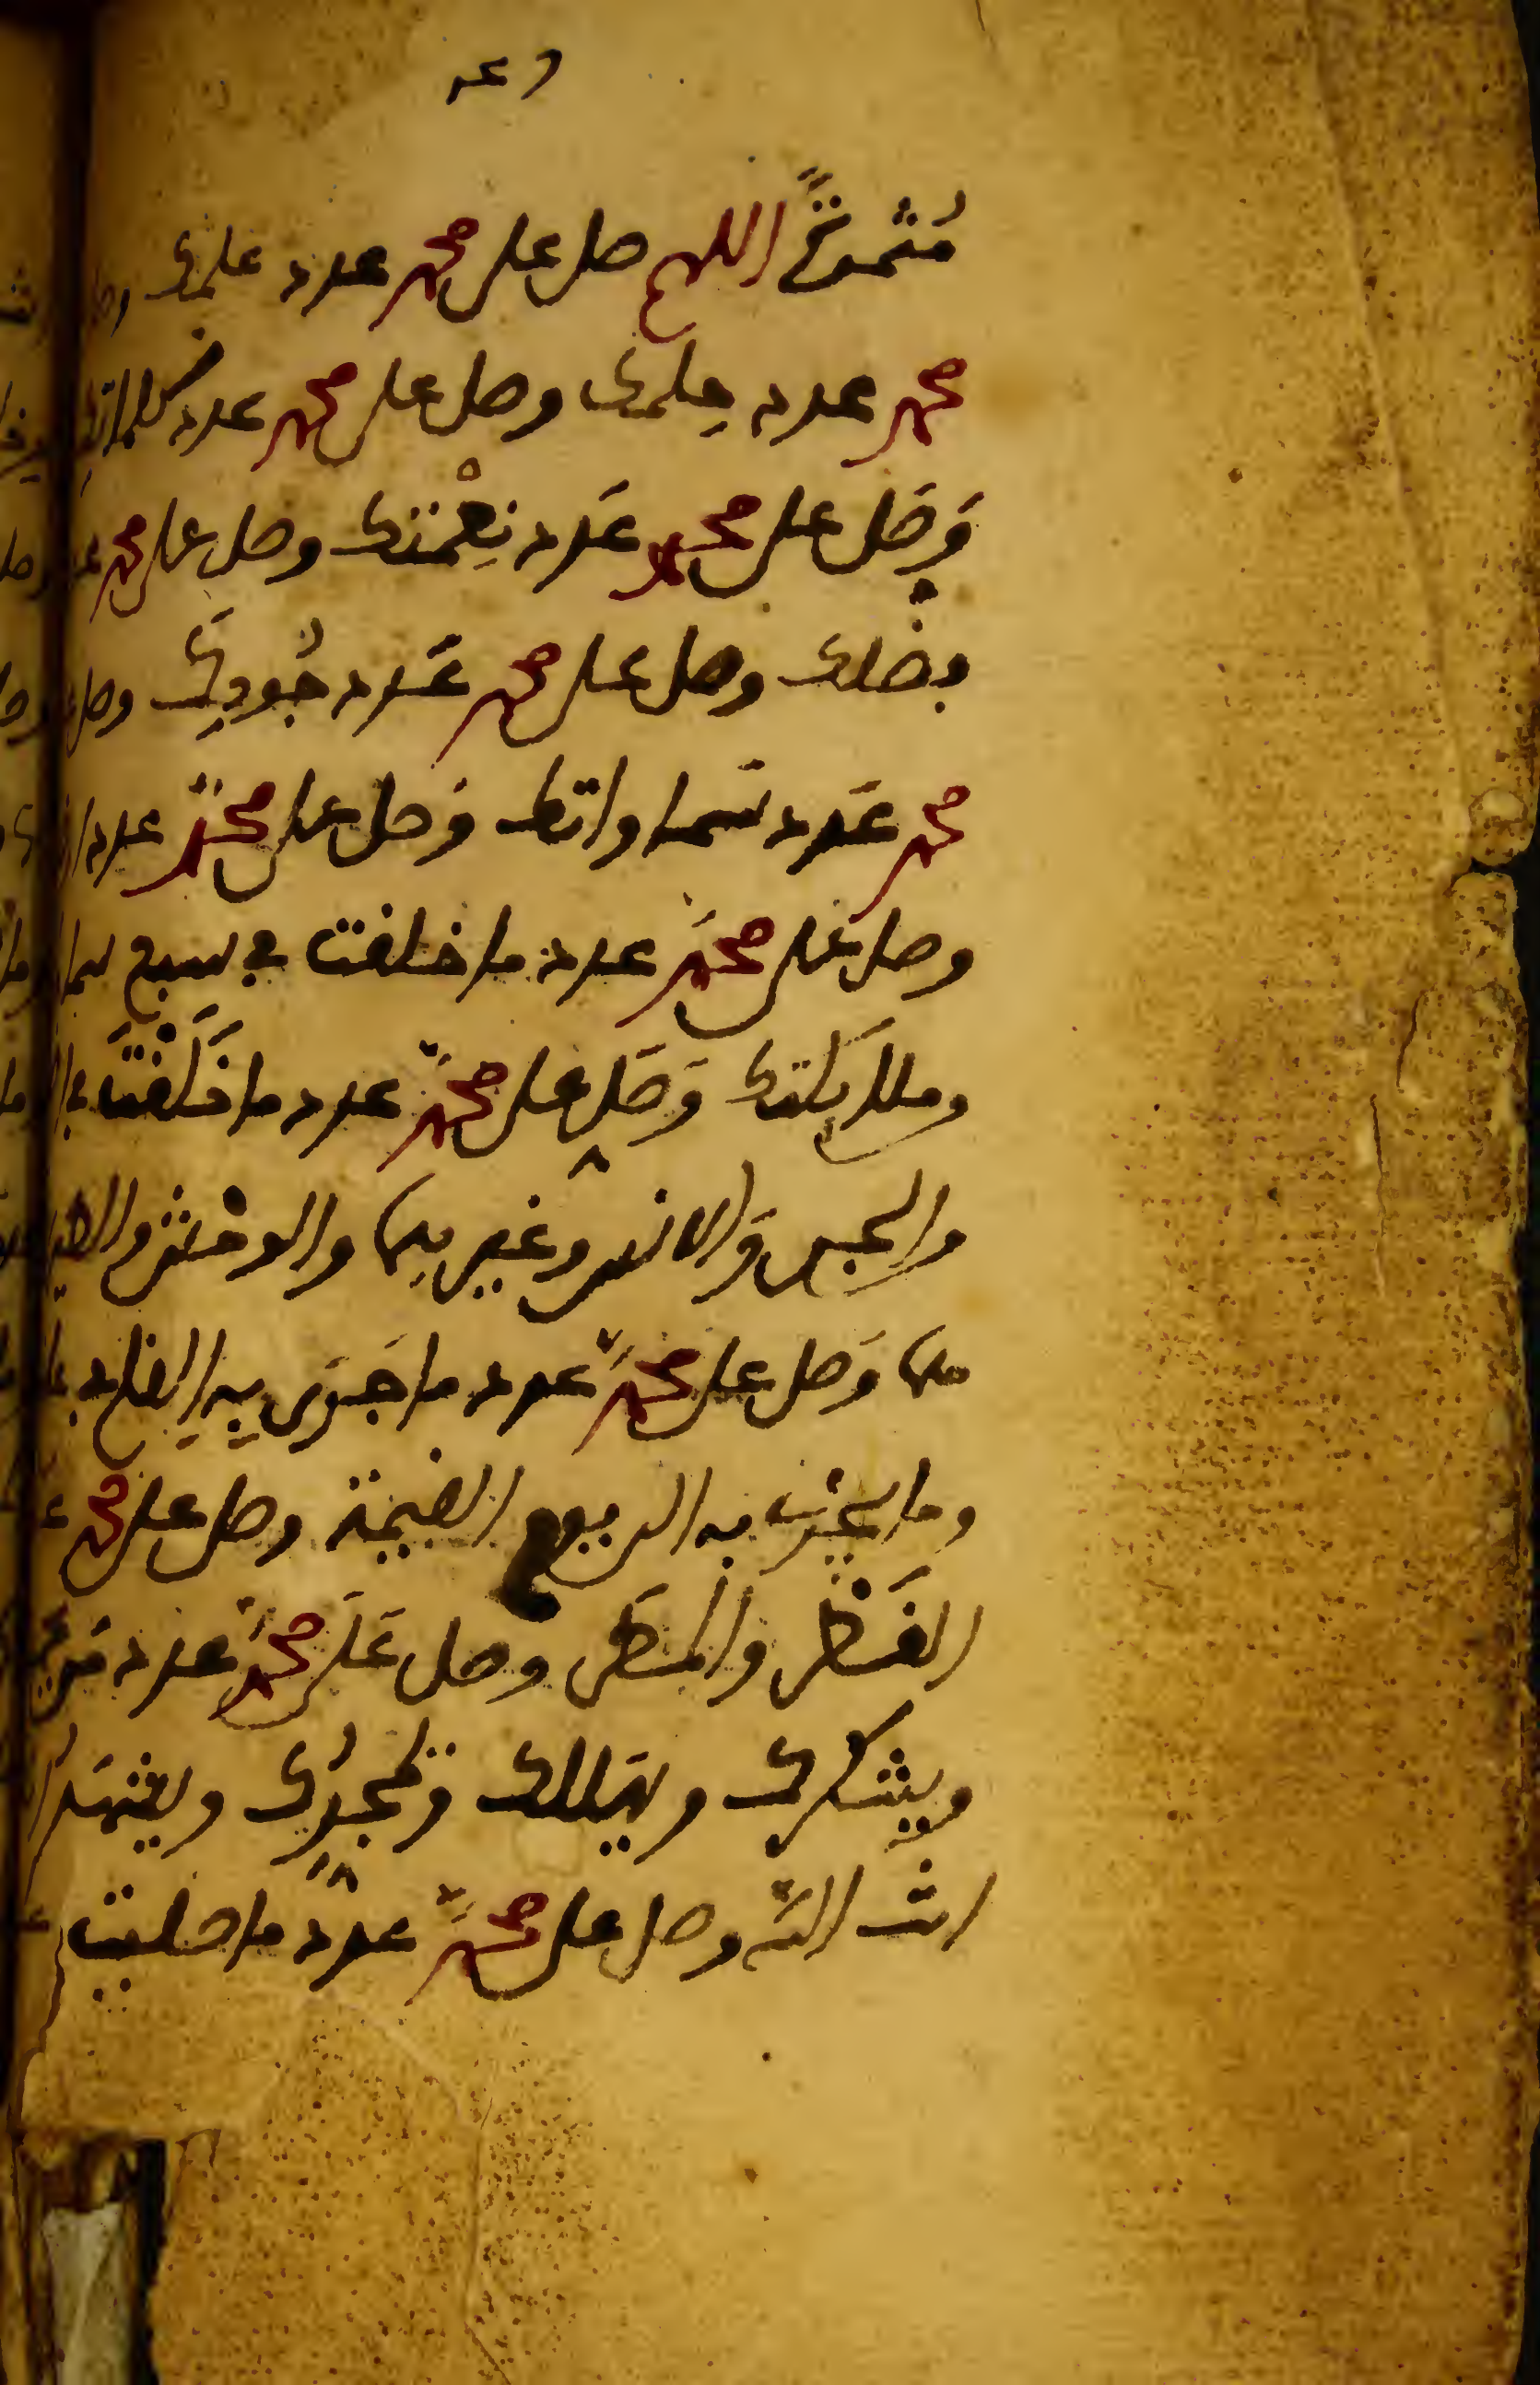 اللهم صل على محمد عدد علمك
محمد عدد حلمك وصل على محمد عدد كلماتك
وَصَل على محمد عَدد نِعْمتك وصل على محمد
بضلك وصل على محمد عَدد جُودِكَ وصل
محمد عَدد سَماواتك وَصل على محمدٍ عدد
وصل على محمدٍ عدد ما خلقت في سبع سما
وملايكتك وَصَلِ على محمدٍ عدد ما خَلَقْتَ في
والجن وَالانس وغيرهما والوحش والطير
وَصل على محمدٍ عدد ما جَرَى بِهِ القلم
وما يجرى به الى يوم القيمة وصل على محمد
القَطر والمَطَر وصل عَلَى محمدٍ عدد مَن
ويشكرك ويهللك ويمجدُك ويشهَد
انك انت الله وصل على محمدٍ عدد ما صليت